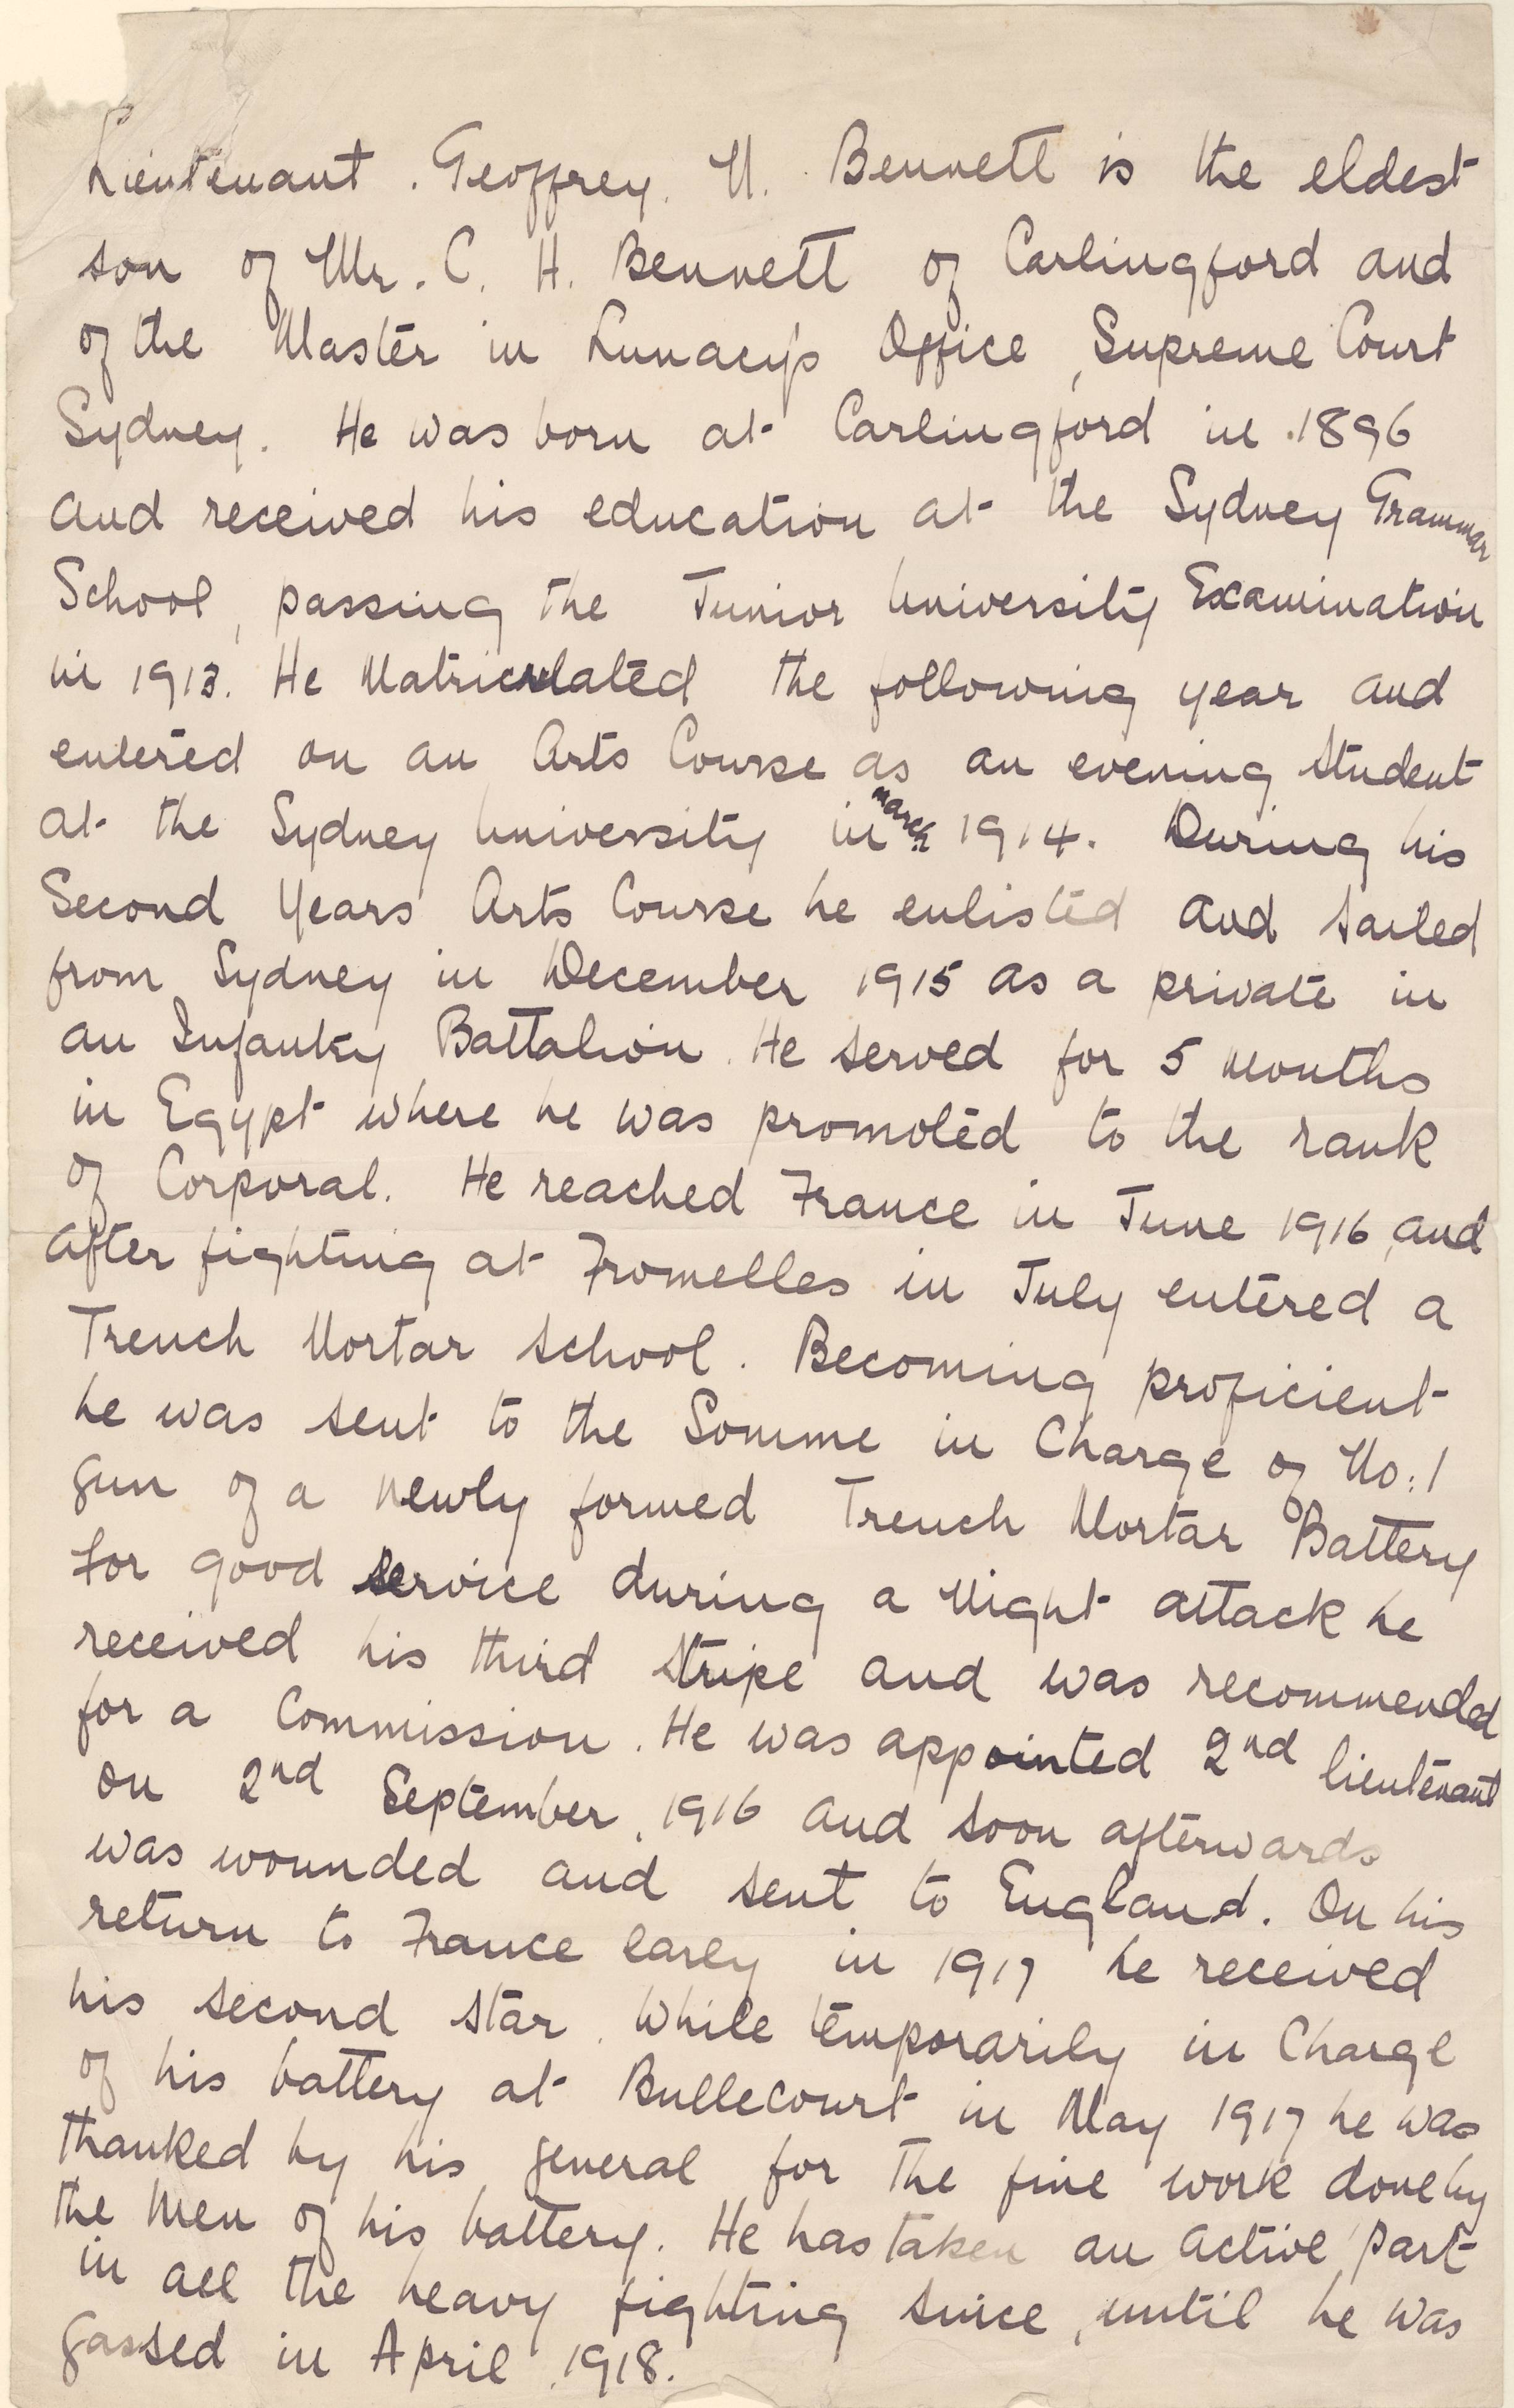 Lieutenant. Geoffrey. N. Bennett is the eldest
son of Mr. C. H. Bennett of Carlingford and
of the Master in Lunacy's Office, Supreme Court
Sydney. He was born at Carlingford in 1896
and received his education at the Sydney Grammar
School, passing the Junior University Examination
in 1913. He Matriculated the following year and
entered on an Arts Course as an evening student
at the Sydney University in March 1914. During his
Second Years Arts Course he enlisted and sailed
from Sydney in December 1915 as a private in
an Infantry Battalion. He served for 5 months
in Egypt where he was promoted to the rank
of Corporal. He reached France in June 1916, and
after fighting at Fromelles in July entered a
Trench Mortar School. Becoming proficient
he was sent to the Somme in Charge of No: 1
gun of a newly formed Trench Mortar Battery
For good service during a Night attack he
received his third stripe and was recommended
for a Commission. He was appointed 2nd lieutenant
on 2nd September, 1916 and soon afterwards
was wounded and sent to England. On his
return to France early in 1917 he received
his second star. While temporarily in Charge
of his battery at Bullecourt in May 1917 he was
thanked by his general for the fine work done by
the Men of his battery. He has taken an active part
in all the heavy fighting since, until he was
gassed in April, 1918.